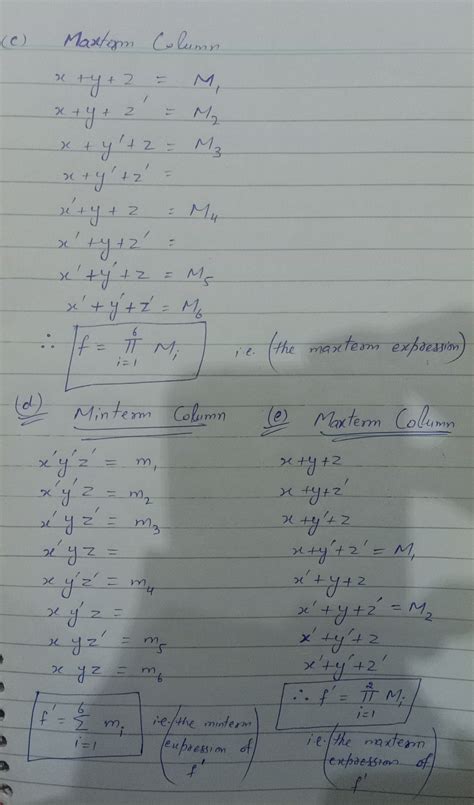 (c) Maxterm Column
x + y + z = M₁
x + y + z' = M₂
x + y' + z = M₃
x + y' + z' =
x' + y + z = M₄
x' + y + z' =
x' + y' + z = M₅
x' + y' + z' = M₆
∴ f = ∏ᵢ₌₁⁶ Mᵢ i.e. (the maxterm expression)
(d) Minterm Column
x'y'z' = m₁
x'y'z = m₂
x'yz' = m₃
x'yz =
xy'z' = m₄
xy'z =
xyz' = m₅
xyz = m₆
f' = ∑ᵢ₌₁⁶ mᵢ i.e. (the minterm
expression of
f')
(e) Maxterm Column
x + y + z
x + y + z'
x + y' + z
x + y' + z' = M₁
x' + y + z
x' + y + z' = M₂
x' + y' + z
x' + y' + z'
∴ f' = ∏ᵢ₌₁² Mᵢ
i.e. (the maxterm
expression of
f')